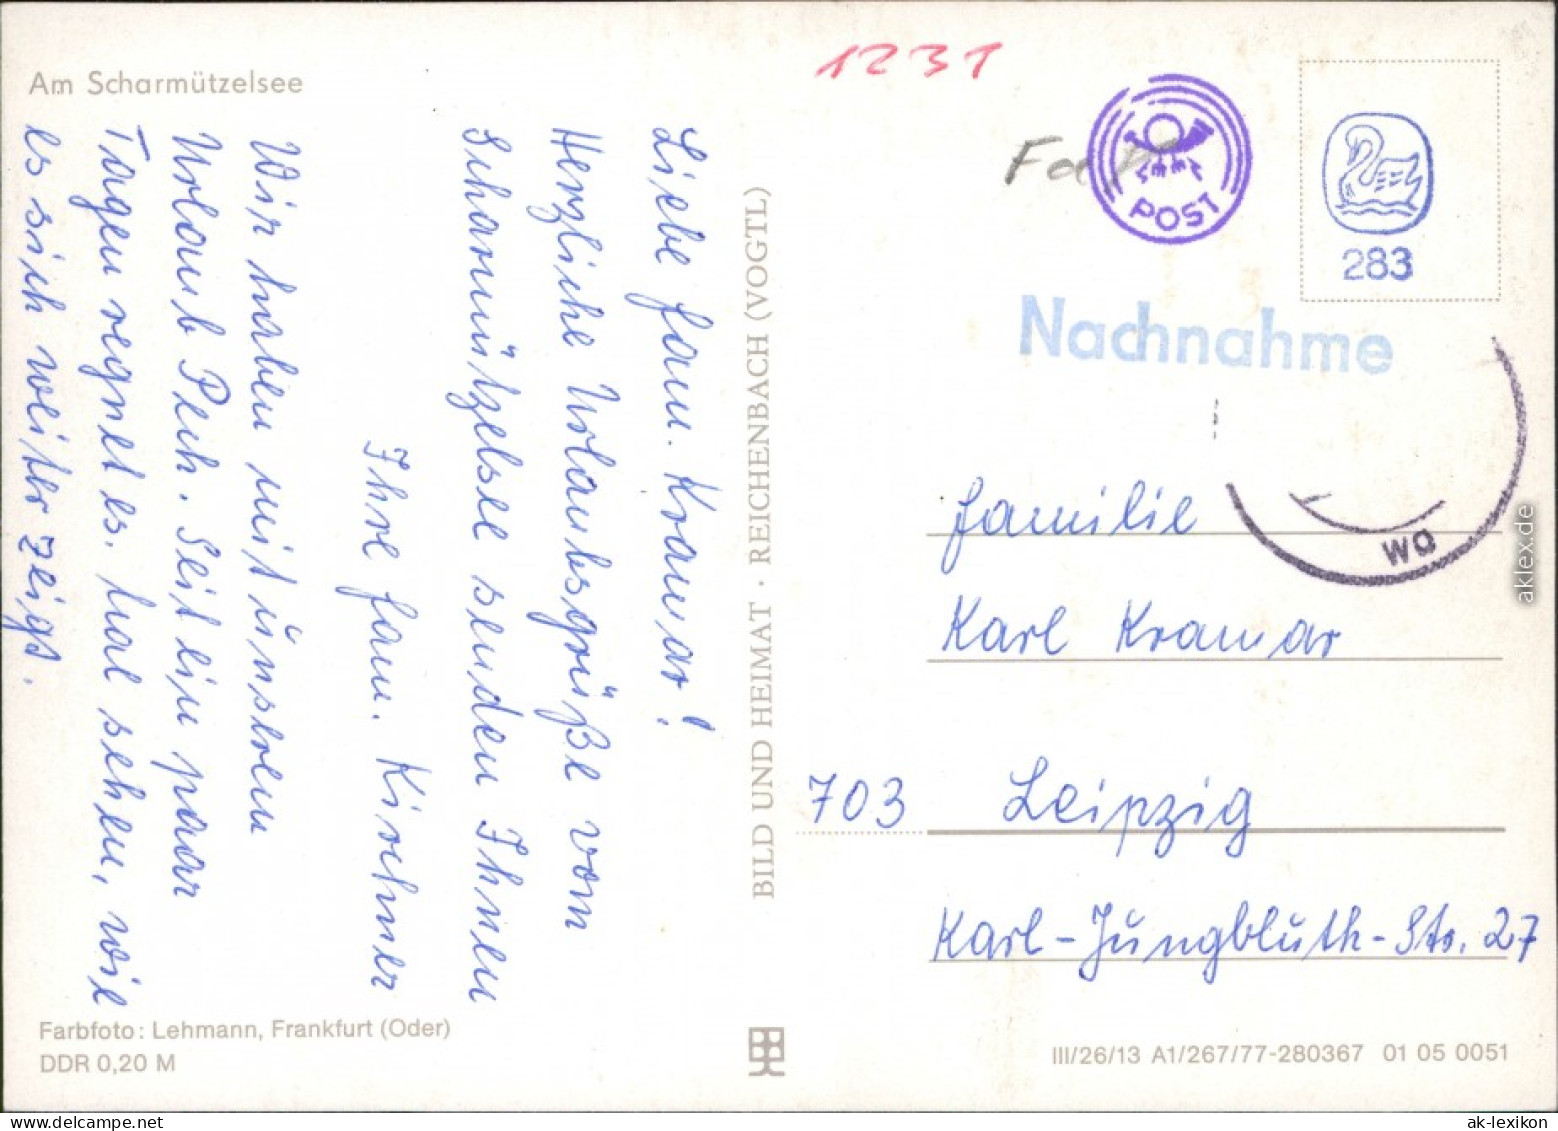 Am Scharmützelsee
Liebe Fam. Kramar!
Herzliche Urlaubsgrüße vom
Scharmützelsee senden Ihnen
Ihre Fam. Kirchner
Wir haben mit unserem
Urlaub Pech. Seit ein paar
Tagen regnet es. Mal sehen, wie
es sich weiter zeigt.
Farbfoto: Lehmann, Frankfurt (Oder)
DDR 0,20 M
BILD UND HEIMAT · REICHENBACH (VOGTL)
1231
POST
283
Nachnahme
wa
Familie
Karl Kramar
703 Leipzig
Karl-Jungbluth-Str. 27
III/26/13 A1/267/77-280367 01 05 0051
aklex.de
ak-lexikon